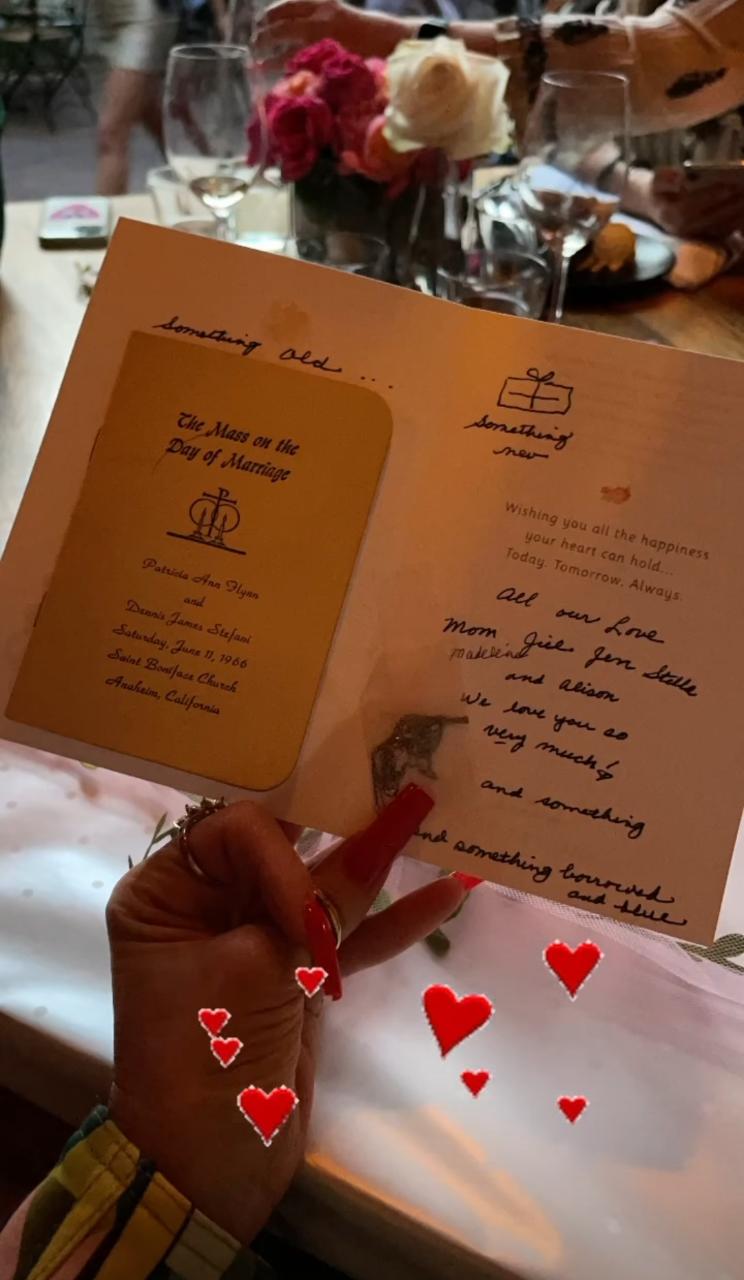 Something Old ...
The Mass on the
Day of Marriage
Patricia Ann Flynn
and
Dennis James Stefani
Saturday, June 11, 1966
Saint Boniface Church
Anaheim, California
Something
new
Wishing you all the happiness
your heart can hold...
Today. Tomorrow. Always.
All our Love
Mom Jill Jen Stella
madeleine
and Alison
We love you so
very much!
and something
and something borrowed
and blue